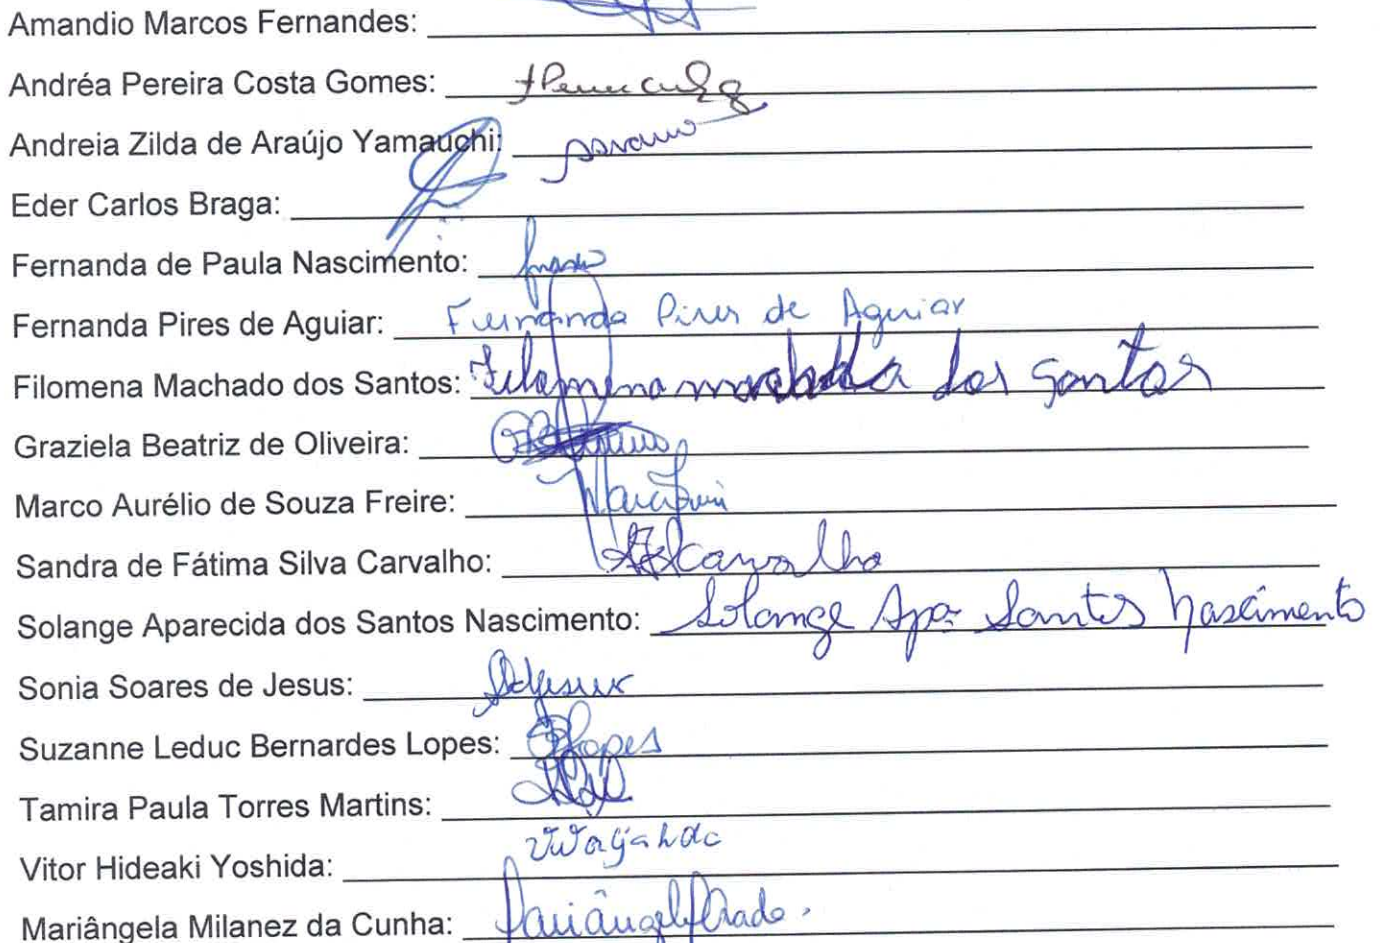 Amandio Marcos Fernandes:
Andréa Pereira Costa Gomes:
Andreia Zilda de Araújo Yamauchi:
Eder Carlos Braga:
Fernanda de Paula Nascimento:
Fernanda Pires de Aguiar: Fernanda Pires de Aguiar
Filomena Machado dos Santos: Filomena machado dos Santos
Graziela Beatriz de Oliveira:
Marco Aurélio de Souza Freire:
Sandra de Fátima Silva Carvalho: Carvalho
Solange Aparecida dos Santos Nascimento: Solange Apª Santos Nascimento
Sonia Soares de Jesus:
Suzanne Leduc Bernardes Lopes: Lopes
Tamira Paula Torres Martins:
Vitor Hideaki Yoshida:
Mariângela Milanez da Cunha: